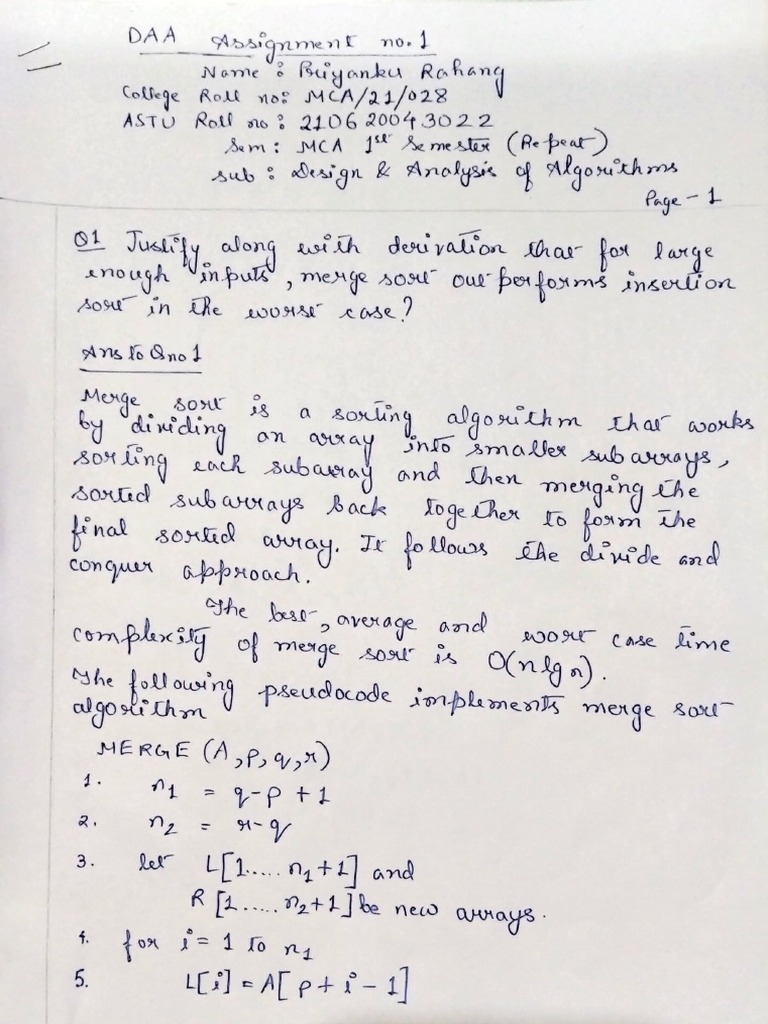 DAA Assignment no. 1
Name : Priyanku Rahang
College Roll no: MCA/21/028
ASTU Roll no : 210620043022
Sem : MCA 1st Semester (Repeat)
sub : Design & Analysis of Algorithms
Page - 1
Q1 Justify along with derivation that for large
enough inputs, merge sort outperforms insertion
sort in the worst case?
Ans to Qno 1
Merge sort is a sorting algorithm that works
by dividing an array into smaller subarrays,
sorting each subarray and then merging the
sorted subarrays back together to form the
final sorted array. It follows the divide and
conquer approach.
The best, average and worst case time
complexity of merge sort is O(n lg n).
The following pseudocode implements merge sort
algorithm
MERGE (A, p, q, r)
1. n1 = q-p+1
2. n2 = r-q
3. let L[1.....n1+1] and
R [1.....n2+1] be new arrays.
4. for i = 1 to n1
5. L[i] = A[p+i-1]